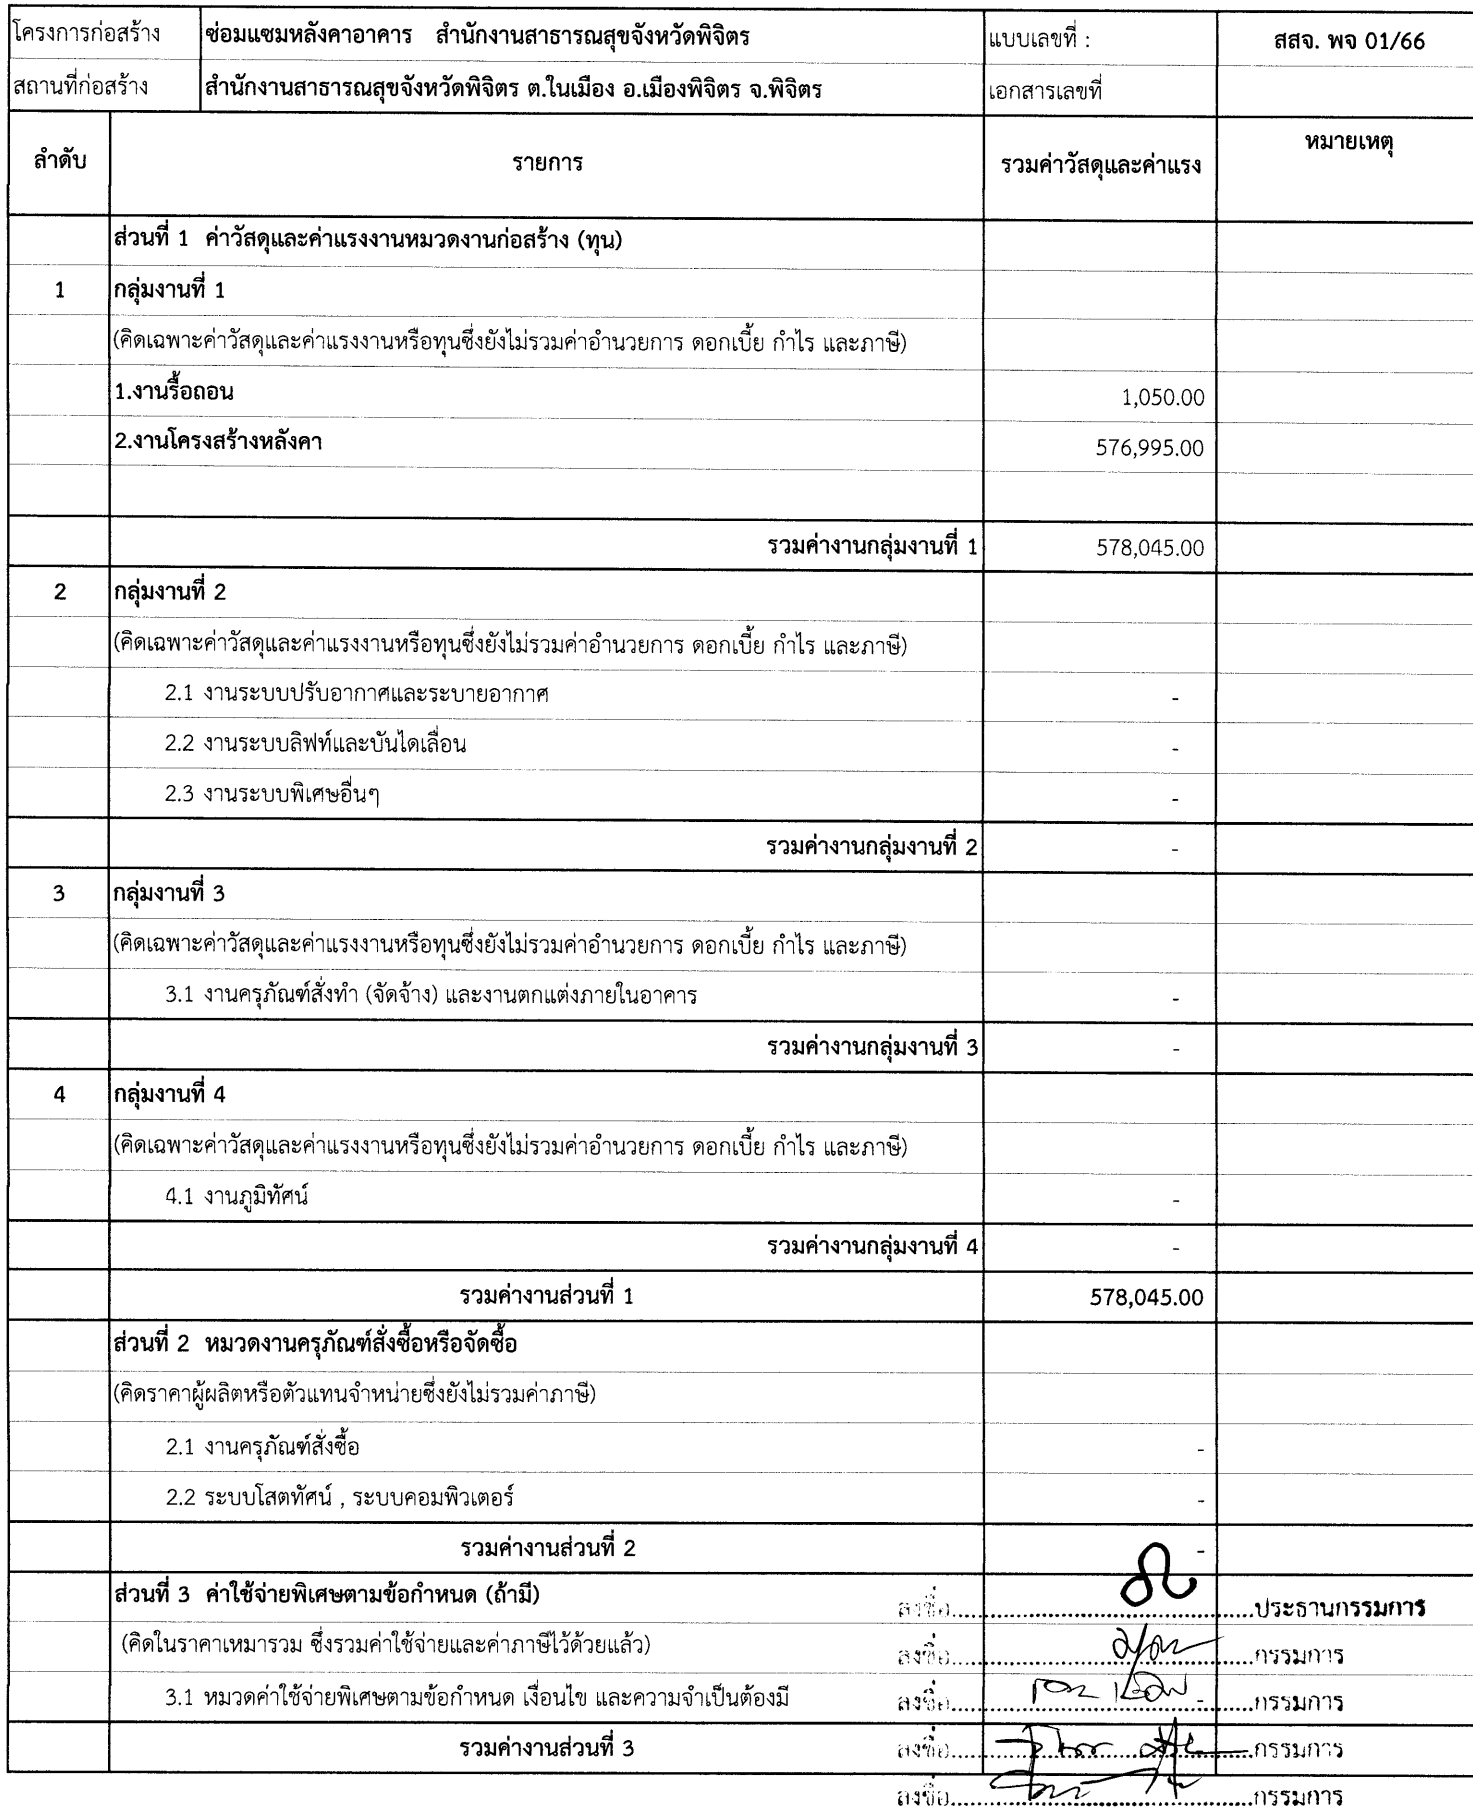 โครงการก่อสร้าง ซ่อมแซมหลังคาอาคาร สำนักงานสาธารณสุขจังหวัดพิจิตร แบบเลขที่ : สสจ. พจ 01/66
สถานที่ก่อสร้าง สำนักงานสาธารณสุขจังหวัดพิจิตร ต.ในเมือง อ.เมืองพิจิตร จ.พิจิตร เอกสารเลขที่
ลำดับ รายการ รวมค่าวัสดุและค่าแรง หมายเหตุ
ส่วนที่ 1 ค่าวัสดุและค่าแรงงานหมวดงานก่อสร้าง (ทุน)
1 กลุ่มงานที่ 1
(คิดเฉพาะค่าวัสดุและค่าแรงงานหรือทุนซึ่งยังไม่รวมค่าอำนวยการ ดอกเบี้ย กำไร และภาษี)
1.งานรื้อถอน 1,050.00
2.งานโครงสร้างหลังคา 576,995.00
รวมค่างานกลุ่มงานที่ 1 578,045.00
2 กลุ่มงานที่ 2
(คิดเฉพาะค่าวัสดุและค่าแรงงานหรือทุนซึ่งยังไม่รวมค่าอำนวยการ ดอกเบี้ย กำไร และภาษี)
2.1 งานระบบปรับอากาศและระบายอากาศ -
2.2 งานระบบลิฟท์และบันไดเลื่อน -
2.3 งานระบบพิเศษอื่นๆ -
รวมค่างานกลุ่มงานที่ 2 -
3 กลุ่มงานที่ 3
(คิดเฉพาะค่าวัสดุและค่าแรงงานหรือทุนซึ่งยังไม่รวมค่าอำนวยการ ดอกเบี้ย กำไร และภาษี)
3.1 งานครุภัณฑ์สั่งทำ (จัดจ้าง) และงานตกแต่งภายในอาคาร -
รวมค่างานกลุ่มงานที่ 3 -
4 กลุ่มงานที่ 4
(คิดเฉพาะค่าวัสดุและค่าแรงงานหรือทุนซึ่งยังไม่รวมค่าอำนวยการ ดอกเบี้ย กำไร และภาษี)
4.1 งานภูมิทัศน์ -
รวมค่างานกลุ่มงานที่ 4 -
รวมค่างานส่วนที่ 1 578,045.00
ส่วนที่ 2 หมวดงานครุภัณฑ์สั่งซื้อหรือจัดซื้อ
(คิดราคาผู้ผลิตหรือตัวแทนจำหน่ายซึ่งยังไม่รวมค่าภาษี)
2.1 งานครุภัณฑ์สั่งซื้อ -
2.2 ระบบโสตทัศน์ , ระบบคอมพิวเตอร์ -
รวมค่างานส่วนที่ 2 -
ส่วนที่ 3 ค่าใช้จ่ายพิเศษตามข้อกำหนด (ถ้ามี) ลงชื่อ..........ประธานกรรมการ
(คิดในราคาเหมารวม ซึ่งรวมค่าใช้จ่ายและค่าภาษีไว้ด้วยแล้ว) ลงชื่อ..........กรรมการ
3.1 หมวดค่าใช้จ่ายพิเศษตามข้อกำหนด เงื่อนไข และความจำเป็นต้องมี ลงชื่อ..........กรรมการ
รวมค่างานส่วนที่ 3 ลงชื่อ..........กรรมการ
ลงชื่อ..........กรรมการ